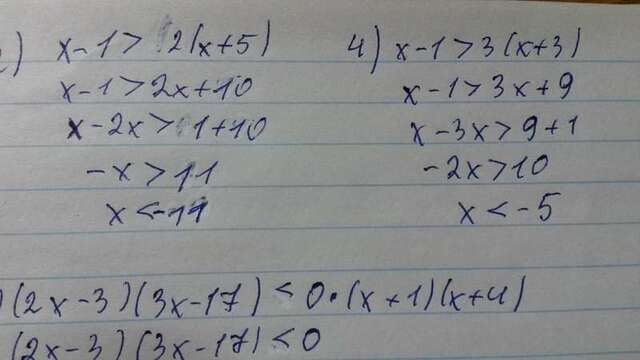 ) x-1> 2(x+5)
x-1>2x+10
x-2x>1+10
-x>11
x<-11
4) x-1>3(x+3)
x-1>3x+9
x-3x>9+1
-2x>10
x<-5
)(2x-3)(3x-17)<0·(x+1)(x+4)
(2x-3)(3x-17)<0